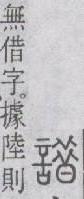 無借字。據陸則